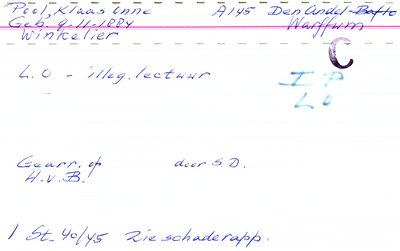 Pool, Klaas Onne A145 Den Andel-Baflo
Geb. 9.11.1884 Warffum
Winkelier
C
L.O - illeg. lectuur I P
L O
Gearr. op door S.D.
H.v.B.
1 St. 40/45 Zie schaderapp.